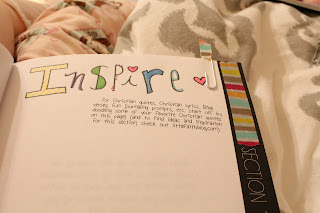 Inspire
For Christian quotes, Christian lyrics, Bible
verses, fun journaling prompts, etc. Start off by
doodling some of your favorite Christian quotes
on this page! (and to find ideas and inspiration
for this section, check out
SECTION